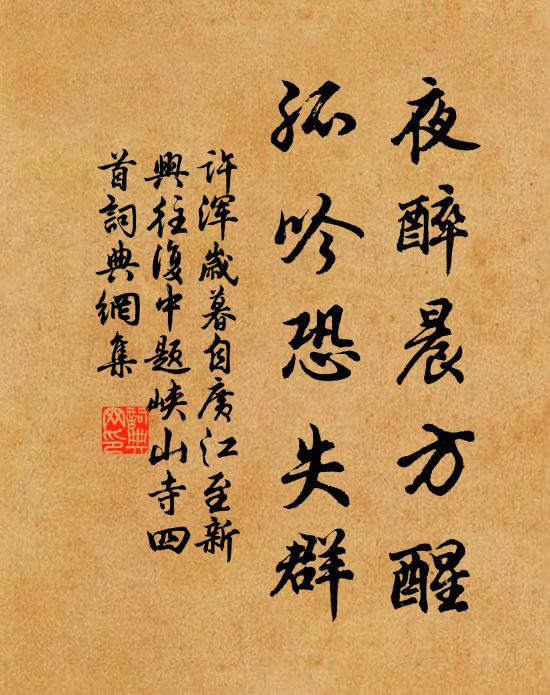 夜醉晨方醒
孤吟恐失群
许浑岁暮自广江至新
兴往复中题峡山寺四
首词典网集
词典网印